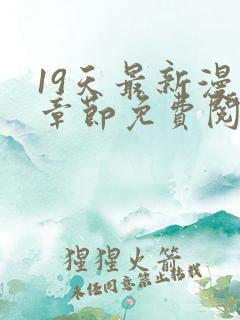 19天最新漫
章節免費閱
猩猩火箭
未经同意禁止转载